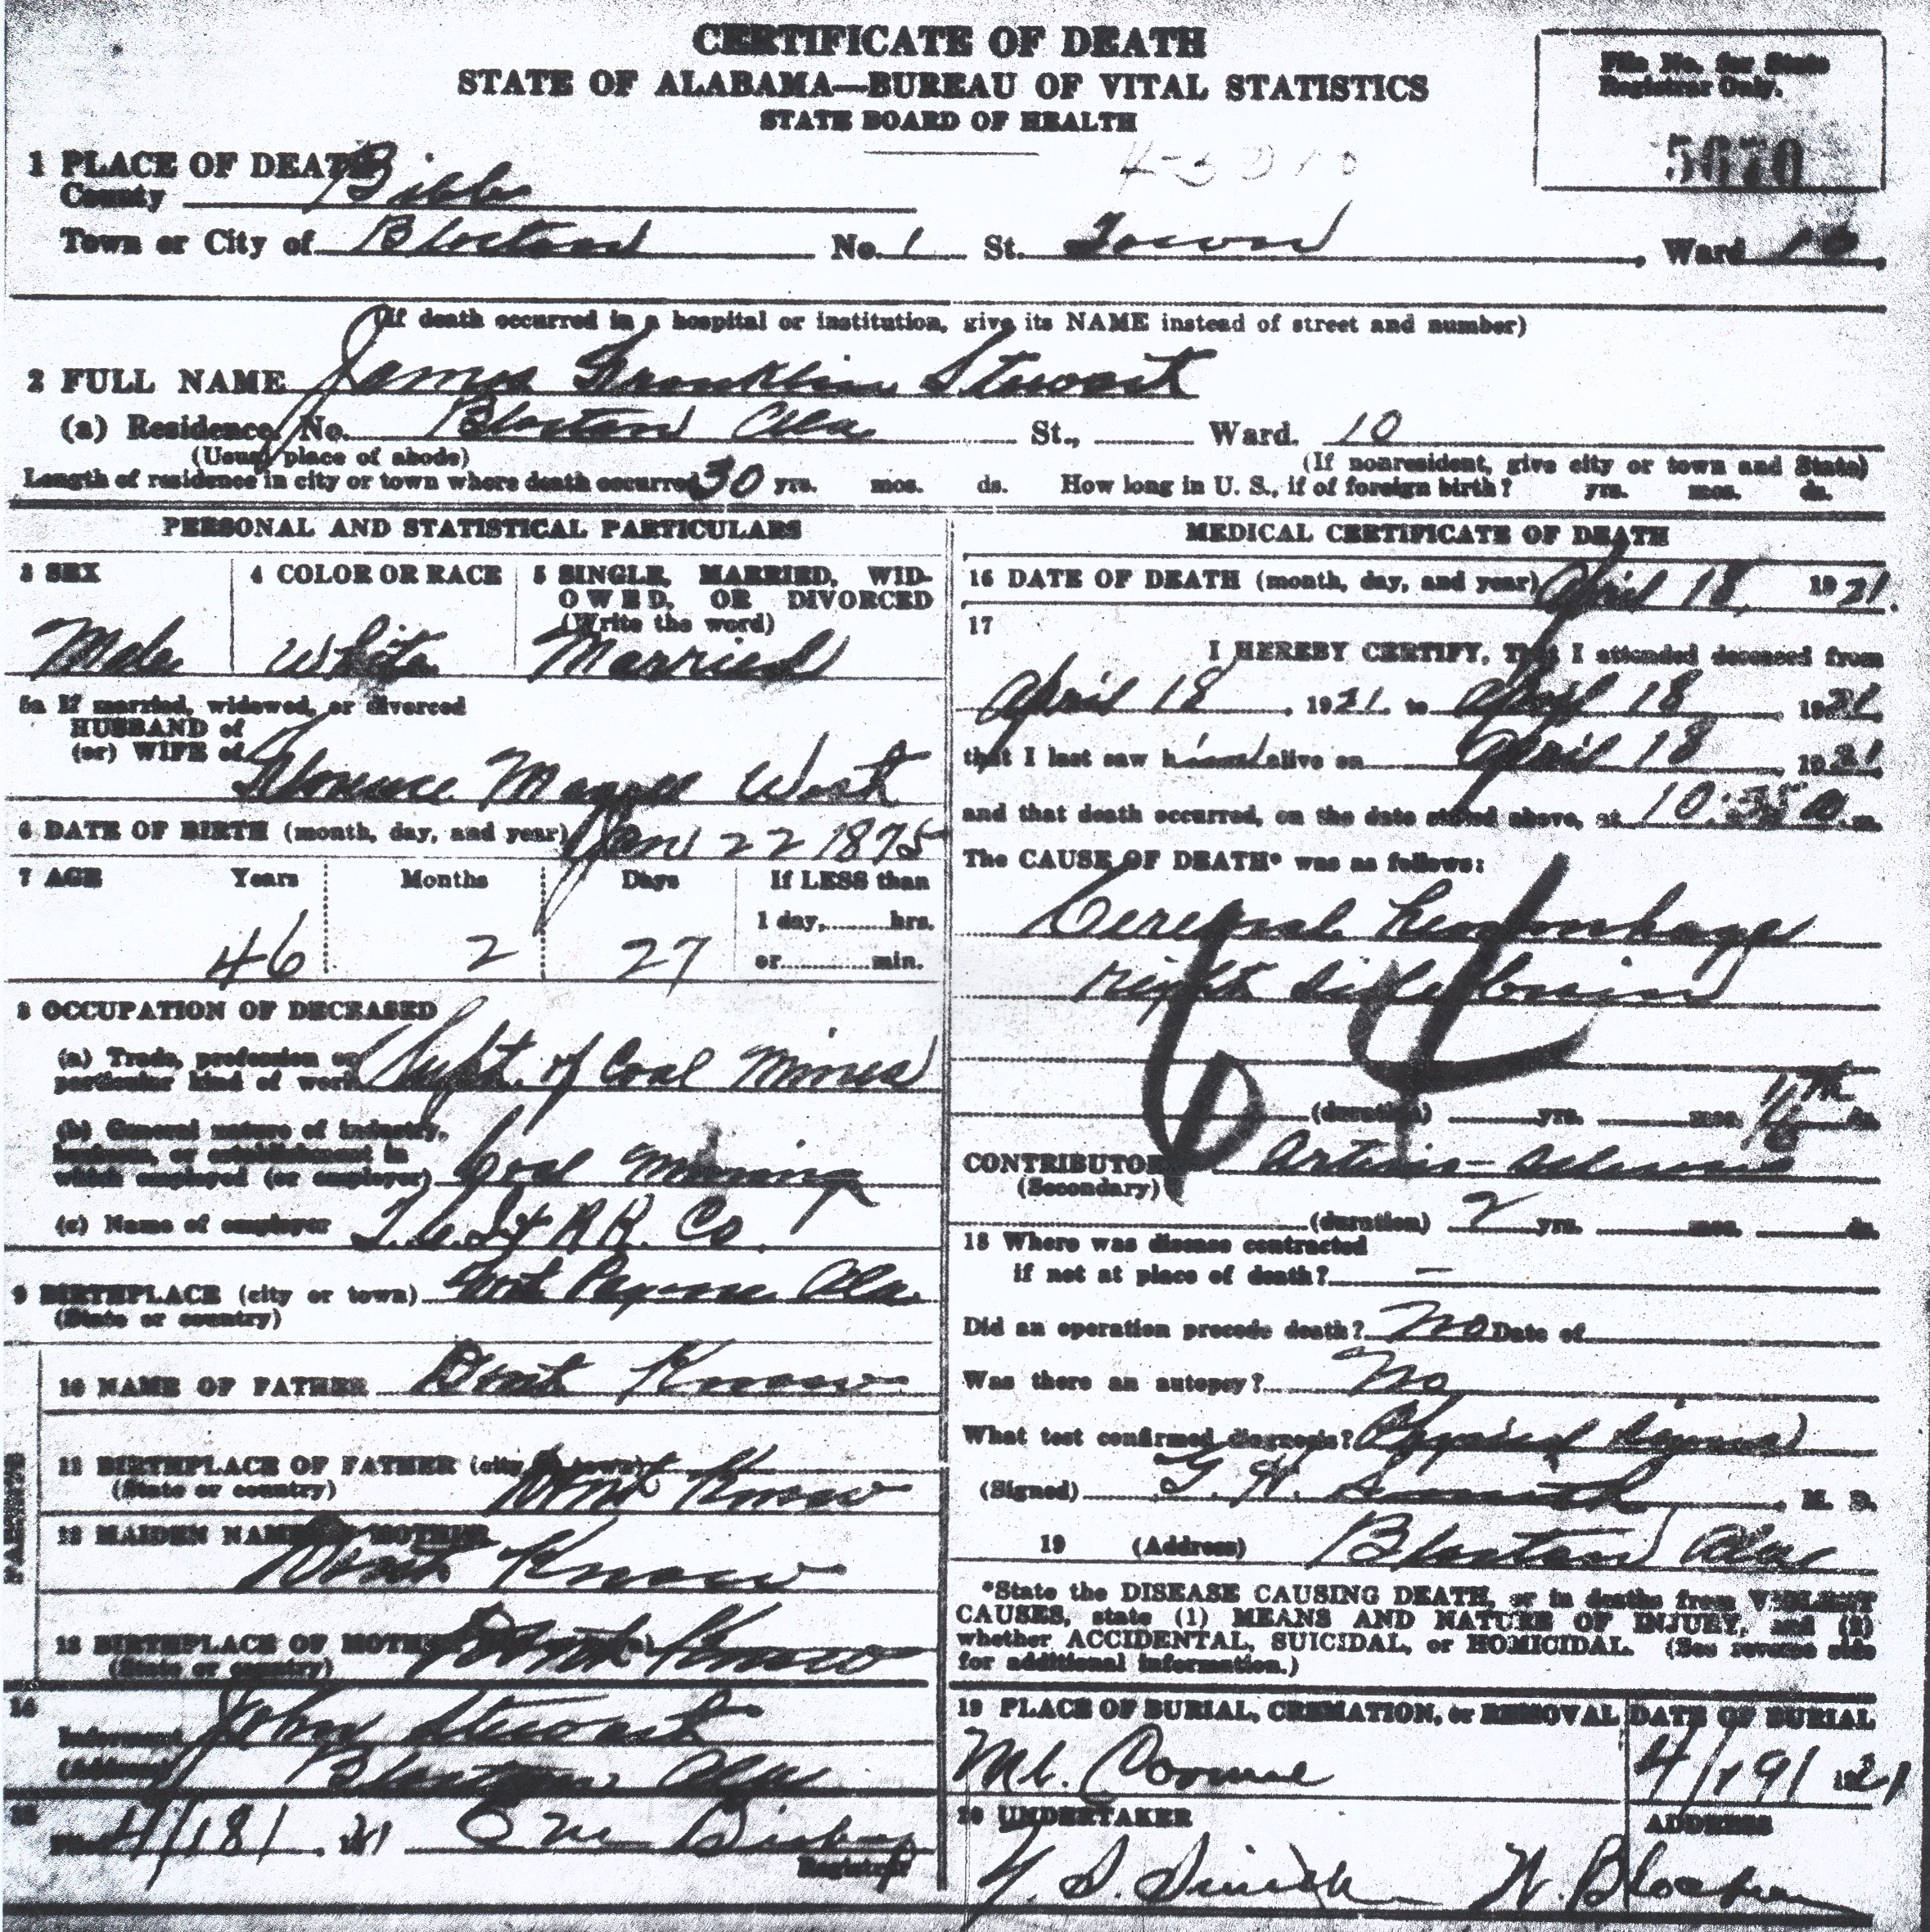 CERTIFICATE OF DEATH
STATE OF ALABAMA—BUREAU OF VITAL STATISTICS
STATE BOARD OF HEALTH
File No. for State
Registrar Only.
5670
1 PLACE OF DEATH
County Bibb
Town or City of Blocton No. 1 St. Town, Ward 10
(If death occurred in a hospital or institution, give its NAME instead of street and number)
2 FULL NAME James Franklin Stewart
(a) Residence, No. Blocton Ala St., Ward. 10
(Usual place of abode) (If nonresident, give city or town and State)
Length of residence in city or town where death occurred 30 yrs. mos. ds. How long in U. S., if of foreign birth? yrs. mos. ds.
PERSONAL AND STATISTICAL PARTICULARS
3 SEX
Male
4 COLOR OR RACE
White
5 SINGLE, MARRIED, WID-
OWED, OR DIVORCED
(Write the word)
Married
5a If married, widowed, or divorced
HUSBAND of
(or) WIFE of
Florence West
6 DATE OF BIRTH (month, day, and year) Jan 22 1875
7 AGE Years Months Days If LESS than
1 day, hrs.
46 2 27 or min.
8 OCCUPATION OF DECEASED
(a) Trade, profession or
particular kind of work Supt. of Coal Mines
(b) General nature of industry,
business, or establishment in
which employed (or employer) Coal Mining
(c) Name of employer T. C. I & R R. Co.
9 BIRTHPLACE (city or town) Fort Payne Ala
(State or country)
PARENTS
10 NAME OF FATHER Dont Know
11 BIRTHPLACE OF FATHER (city or town)
(State or country) Dont Know
12 MAIDEN NAME OF MOTHER
Dont Know
13 BIRTHPLACE OF MOTHER Dont Know
(State or country)
14
Informant John Stewart
(Address) Blocton Ala
15
Filed 4/18/, 21 O M Bishop
Registrar
MEDICAL CERTIFICATE OF DEATH
16 DATE OF DEATH (month, day, and year) April 18, 1921.
17
I HEREBY CERTIFY, That I attended deceased from
April 18, 1921, to April 18, 1921,
that I last saw him alive on April 18, 1921
and that death occurred, on the date stated above, at 10:35 a m.
The CAUSE OF DEATH* was as follows:
Cerebral hemorrhage
right side brain
(duration) yrs. mos. ds.
CONTRIBUTORY Arterio-sclerosis
(Secondary)
(duration) 2 yrs. mos. ds.
18 Where was disease contracted
if not at place of death? —
Did an operation precede death? No Date of
Was there an autopsy? No
What test confirmed diagnosis? Physical signs
(Signed) G. W. Smith, M. D.
19 (Address) Blocton Ala
*State the DISEASE CAUSING DEATH, or in deaths from VIOLENT
CAUSES, state (1) MEANS AND NATURE OF INJURY, and (2)
whether ACCIDENTAL, SUICIDAL, or HOMICIDAL. (See reverse side
for additional information.)
19 PLACE OF BURIAL, CREMATION, or REMOVAL
Mt. Carmel
DATE OF BURIAL
4/19/1921
20 UNDERTAKER
ADDRESS
W. Blocton